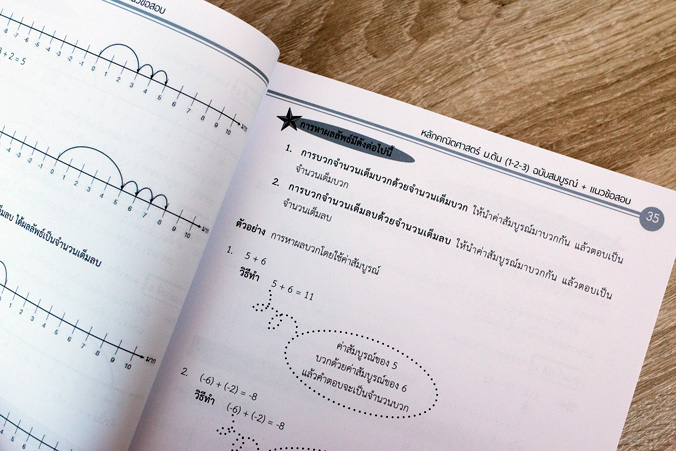 แนวข้อสอบ
-4 -3 -2 -1 0 1 2 3 4 5 6 7 8 9 10
3 + 2 = 5
-1 0 1 2 3 4 5 6 7 8 9 10
ได้ผลลัพธ์เป็นจำนวนเต็มลบ
0 1 2 3 4 5 6 7 8 9 10
หลักคณิตศาสตร์ ม.ต้น (1-2-3) ฉบับสมบูรณ์ + แนวข้อสอบ
35
การหาผลลัพธ์มีดังต่อไปนี้
1. การบวกจำนวนเต็มบวกด้วยจำนวนเต็มบวก ให้นำค่าสัมบูรณ์มาบวกกัน แล้วตอบเป็น
จำนวนเต็มบวก
2. การบวกจำนวนเต็มลบด้วยจำนวนเต็มลบ ให้นำค่าสัมบูรณ์มาบวกกัน แล้วตอบเป็น
จำนวนเต็มลบ
ตัวอย่าง การหาผลบวกโดยใช้ค่าสัมบูรณ์
1. 5 + 6
วิธีทำ 5 + 6 = 11
ค่าสัมบูรณ์ของ 5
บวกด้วยค่าสัมบูรณ์ของ 6
แล้วคำตอบจะเป็นจำนวนบวก
2. (-6) + (-2) = -8
วิธีทำ (-6) + (-2) = -8